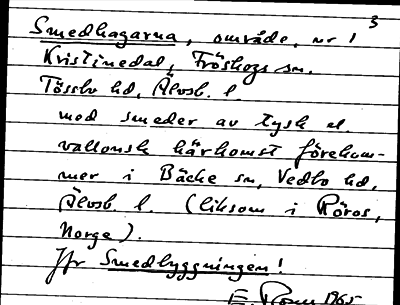 3
Smedhagarna, område, nr 1
Kristinedal, Fröskogs sn.
Tössbo hd, Älvsb. l.
med smeder av tysk el.
vallonsk härkomst förekom-
mer i Bäcke sn, Vedbo hd,
Älvsb. l. (liksom i Röros,
Norge).
Jfr Smedbyggningen!
E. 1965